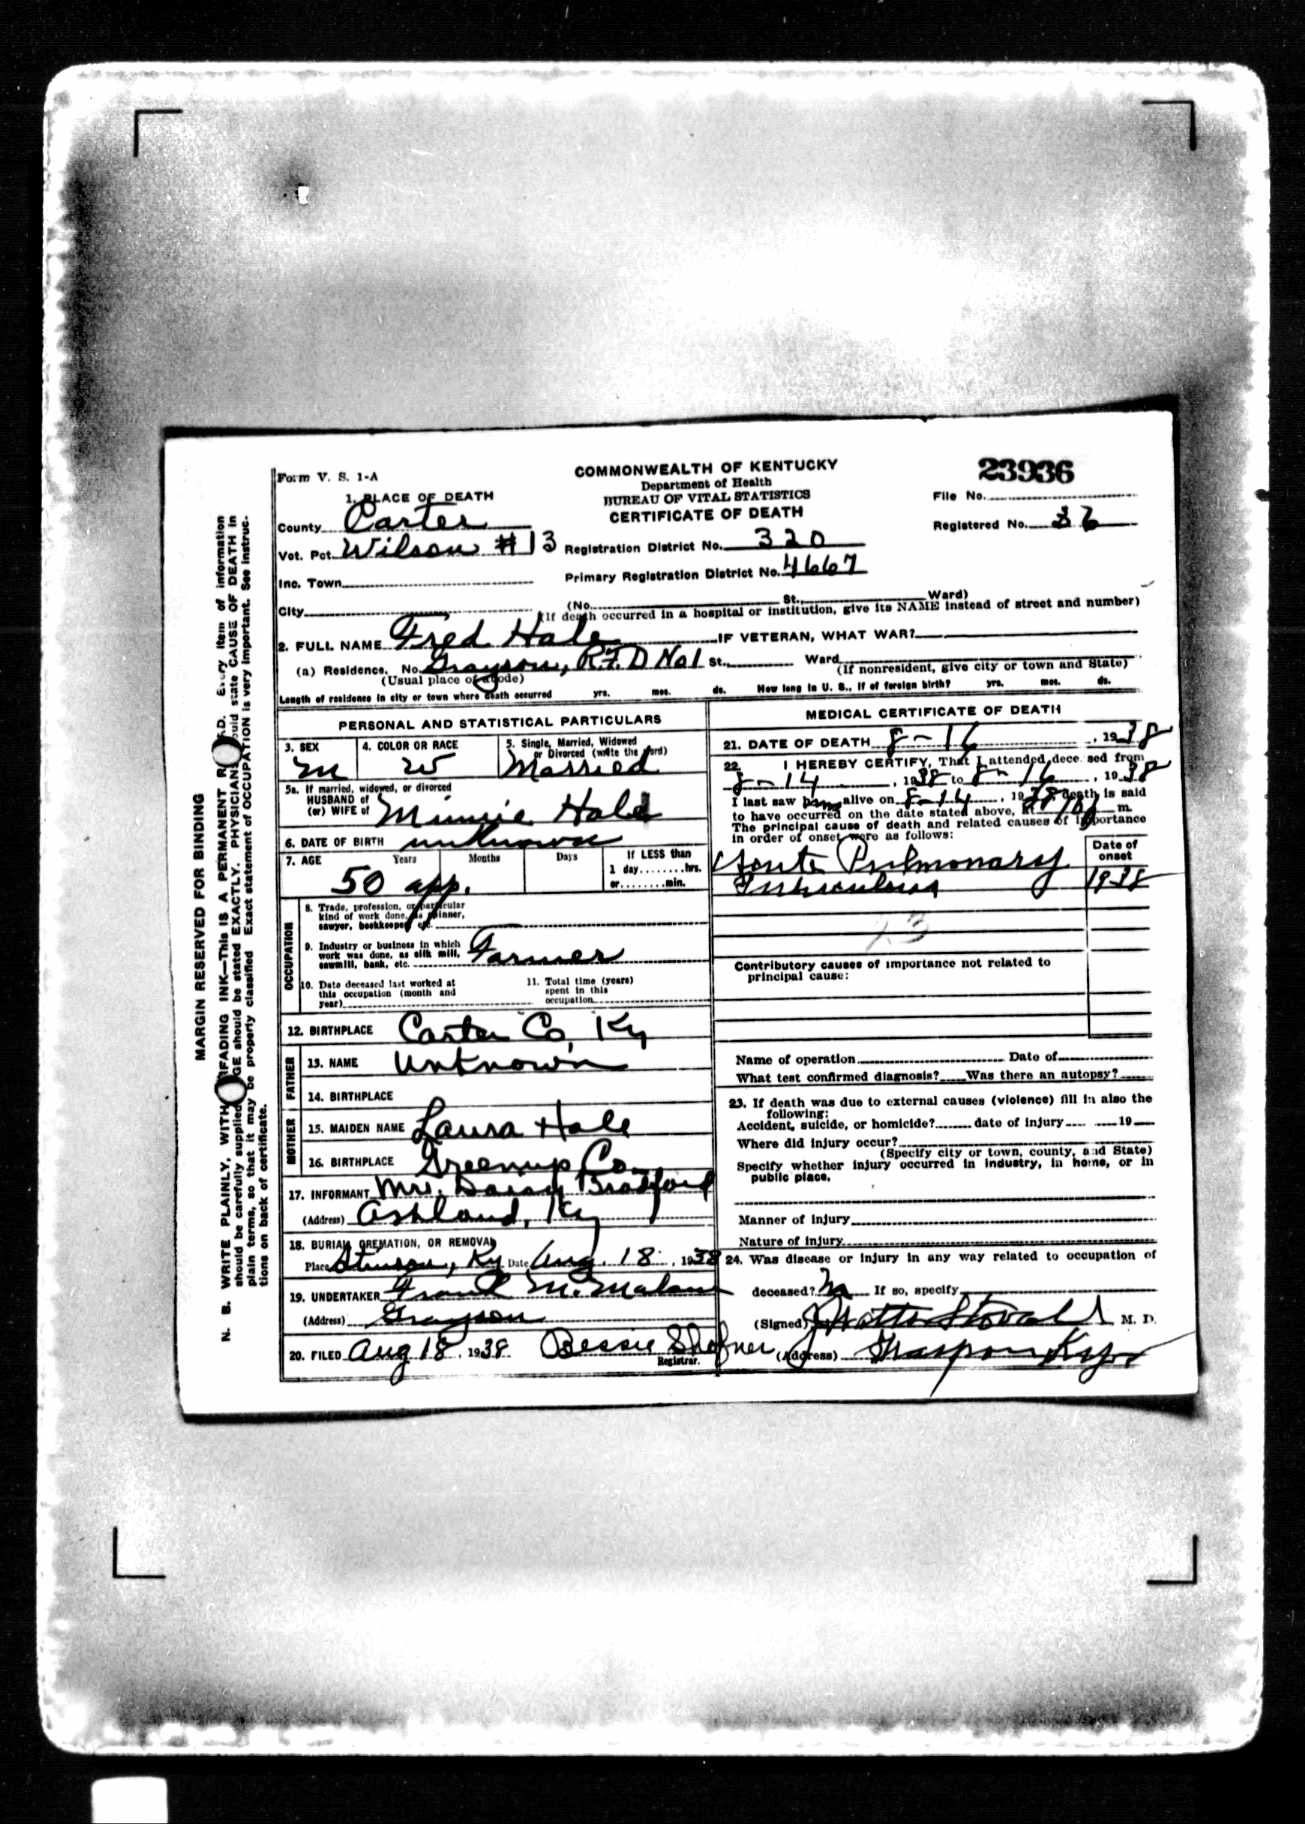 Form V. S. 1-A
COMMONWEALTH OF KENTUCKY
Department of Health
BUREAU OF VITAL STATISTICS
CERTIFICATE OF DEATH
23936
File No.
Registered No. 36
1. PLACE OF DEATH
County Carter
Vot. Pct. Wilson #13
Registration District No. 320
Inc. Town
Primary Registration District No. 4667
City
(No. St., Ward)
(If death occurred in a hospital or institution, give its NAME instead of street and number)
2. FULL NAME Fred Hale IF VETERAN, WHAT WAR?
(a) Residence, No. Grayson, R.F.D No1 St., Ward
(Usual place of abode) (If nonresident, give city or town and State)
Length of residence in city or town where death occurred yrs. mos. ds. How long in U. S., if of foreign birth? yrs. mos. ds.
PERSONAL AND STATISTICAL PARTICULARS
3. SEX M
4. COLOR OR RACE W
5. Single, Married, Widowed
or Divorced (write the word)
Married
5a. If married, widowed, or divorced
HUSBAND of
(or) WIFE of Minnie Hale
6. DATE OF BIRTH unknown
7. AGE Years Months Days If LESS than
1 day........hrs.
or........min.
50 app.
OCCUPATION
8. Trade, profession, or particular
kind of work done, as spinner,
sawyer, bookkeeper, etc.
9. Industry or business in which
work was done, as silk mill,
sawmill, bank, etc. Farmer
10. Date deceased last worked at
this occupation (month and
year)
11. Total time (years)
spent in this
occupation
12. BIRTHPLACE Carter Co, Ky
FATHER
13. NAME Unknown
14. BIRTHPLACE
MOTHER
15. MAIDEN NAME Laura Hale
16. BIRTHPLACE Greenup Co.
17. INFORMANT Bradford
(Address) Ashland, Ky
18. BURIAL, CREMATION, OR REMOVAL
Place Stinson, Ky Date Aug. 18, 1938
19. UNDERTAKER Frank M. Malone
(Address) Grayson
20. FILED Aug 18, 1938 Bessie Shofner
Registrar.
MEDICAL CERTIFICATE OF DEATH
21. DATE OF DEATH 8-16, 1938
22. I HEREBY CERTIFY, That I attended deceased from
8-14, 1938 to 8-16, 1938
I last saw him alive on 8-14, 1938 death is said
to have occurred on the date stated above, at m.
The principal cause of death and related causes of importance
in order of onset were as follows:
Date of
onset
Acute Pulmonary
Tuberculosis 1938
13
Contributory causes of importance not related to
principal cause:
Name of operation Date of
What test confirmed diagnosis? Was there an autopsy?
23. If death was due to external causes (violence) fill in also the
following:
Accident, suicide, or homicide? date of injury 19
Where did injury occur?
(Specify city or town, county, and State)
Specify whether injury occurred in industry, in home, or in
public place.
Manner of injury
Nature of injury
24. Was disease or injury in any way related to occupation of
deceased? No If so, specify
(Signed) J Watts Stovall M. D.
(Address) Grayson Ky
MARGIN RESERVED FOR BINDING
N. B. WRITE PLAINLY, WITH UNFADING INK—THIS IS A PERMANENT RECORD. Every item of information
should be carefully supplied. AGE should be stated EXACTLY. PHYSICIANS should state CAUSE OF DEATH in
plain terms, so that it may be properly classified. Exact statement of OCCUPATION is very important. See instruc-
tions on back of certificate.